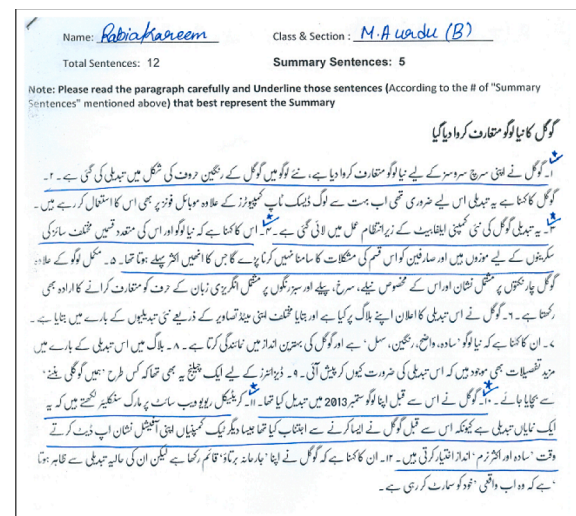 Name: Rabia Kareem Class & Section : M.A urdu (B)
Total Sentences: 12 Summary Sentences: 5
Note: Please read the paragraph carefully and Underline those sentences (According to the # of "Summary
Sentences" mentioned above) that best represent the Summary
گوگل کا نیا لوگو متعارف کروا دیا گیا
۱۔ گوگل نے اپنی سرچ سروسز کے لیے نیا لوگو متعارف کروا دیا ہے، نئے لوگو میں گوگل کے رنگین حروف کی شکل میں تبدیلی کی گئی ہے ۔ ۲۔
گوگل کا کہنا ہے یہ تبدیلی اس لیے ضروری تھی اب بہت سے لوگ ڈیسک ٹاپ کمپیوٹرز کے علاوہ موبائل فونز پر بھی اس کا استعمال کر رہے ہیں۔
۳۔ یہ تبدیلی گوگل کی نئی کمپنی ایلفابیٹ کے زیر انتظام عمل میں لائی گئی ہے ۔ ۴۔ اس کا کہنا ہے کہ نیا لوگو اور اس کی متعدد قسمیں مختلف سائز کی
سکرینوں کے لیے موزوں ہیں اور صارفین کو اس قسم کی مشکلات کا سامنا نہیں کرنا پڑے گا جس کا انھیں اکثر پہلے ہوتا تھا۔ ۵۔ مکمل لوگو کے علاوہ
گوگل چار رنگوں پر مشتمل نشان اور اس کے مخصوص نیلے، سرخ، پیلے اور سبز رنگوں پر مشتمل انگریزی زبان کے حرف کو متعارف کرانے کا ارادہ بھی
رکھتا ہے ۔ ۶۔ گوگل نے اس تبدیلی کا اعلان اپنے بلاگ پر کیا ہے اور بتایا مختلف اپنی مینڈ تصاویر کے ذریعے نئی تبدیلیوں کے بارے میں بتایا ہے ۔
۷۔ ان کا کہنا ہے کہ نیا لوگو 'سادہ، واضح، رنگین، سہل' ہے اور گوگل کی بہترین انداز میں نمائندگی کرتا ہے۔ ۸۔ بلاگ میں اس تبدیلی کے بارے میں
مزید تفصیلات بھی موجود ہیں کہ اس تبدیلی کی ضرورت کیوں کر پیش آئی۔ ۹۔ ڈیزائنرز کے لیے ایک چیلنج یہ بھی تھا کہ کس طرح 'ہمیں گوگلی بننے'
سے بچایا جائے۔ ۱۰۔ گوگل نے اس سے قبل اپنا لوگو ستمبر 2013 میں تبدیل کیا تھا۔ ۱۱۔ کریٹیکل ریویو ویب سائٹ پر مارک سنکلیئر لکھتے ہیں کہ یہ
ایک نمایاں تبدیلی ہے کیونکہ اس سے قبل گوگل نے ایسا کرنے سے اجتناب کیا تھا جیسا دیگر ٹیک کمپنیاں اپنی آفیشل نشان اپ ڈیٹ کرتے
وقت 'سادہ اور اکثر نرم' انداز اختیار کرتی ہیں۔ ۱۲۔ ان کا کہنا ہے کہ گوگل نے اپنا 'جارحانہ برتاؤ' قائم رکھا ہے لیکن ان کی حالیہ تبدیلی سے ظاہر ہوتا
ہے کہ وہ اب واقعی 'خود کو سمارٹ کر رہی ہے۔